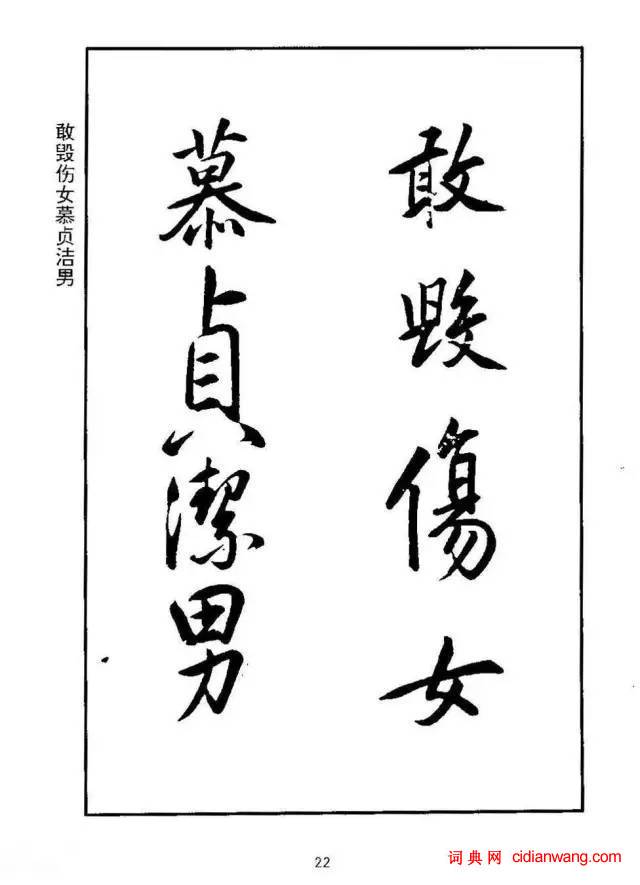 敢毁傷女
慕貞潔男
敢毁伤女慕贞洁男
22
词典网 cidianwang.com